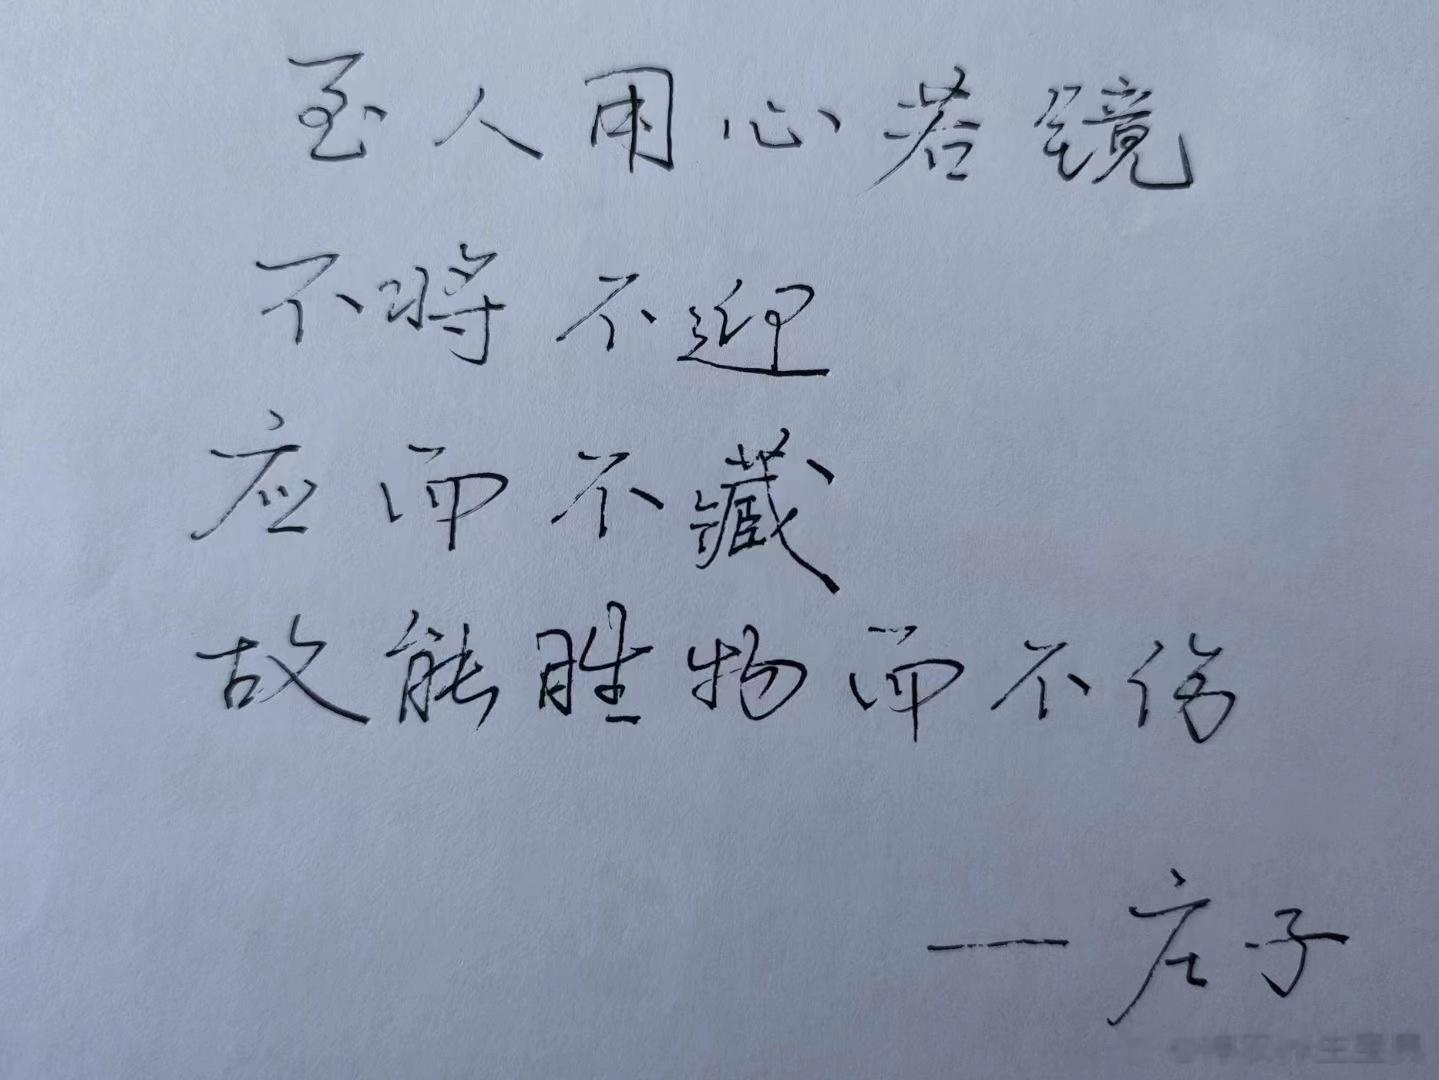 至人用心若镜
不将不迎
应而不藏
故能胜物而不伤
—庄子